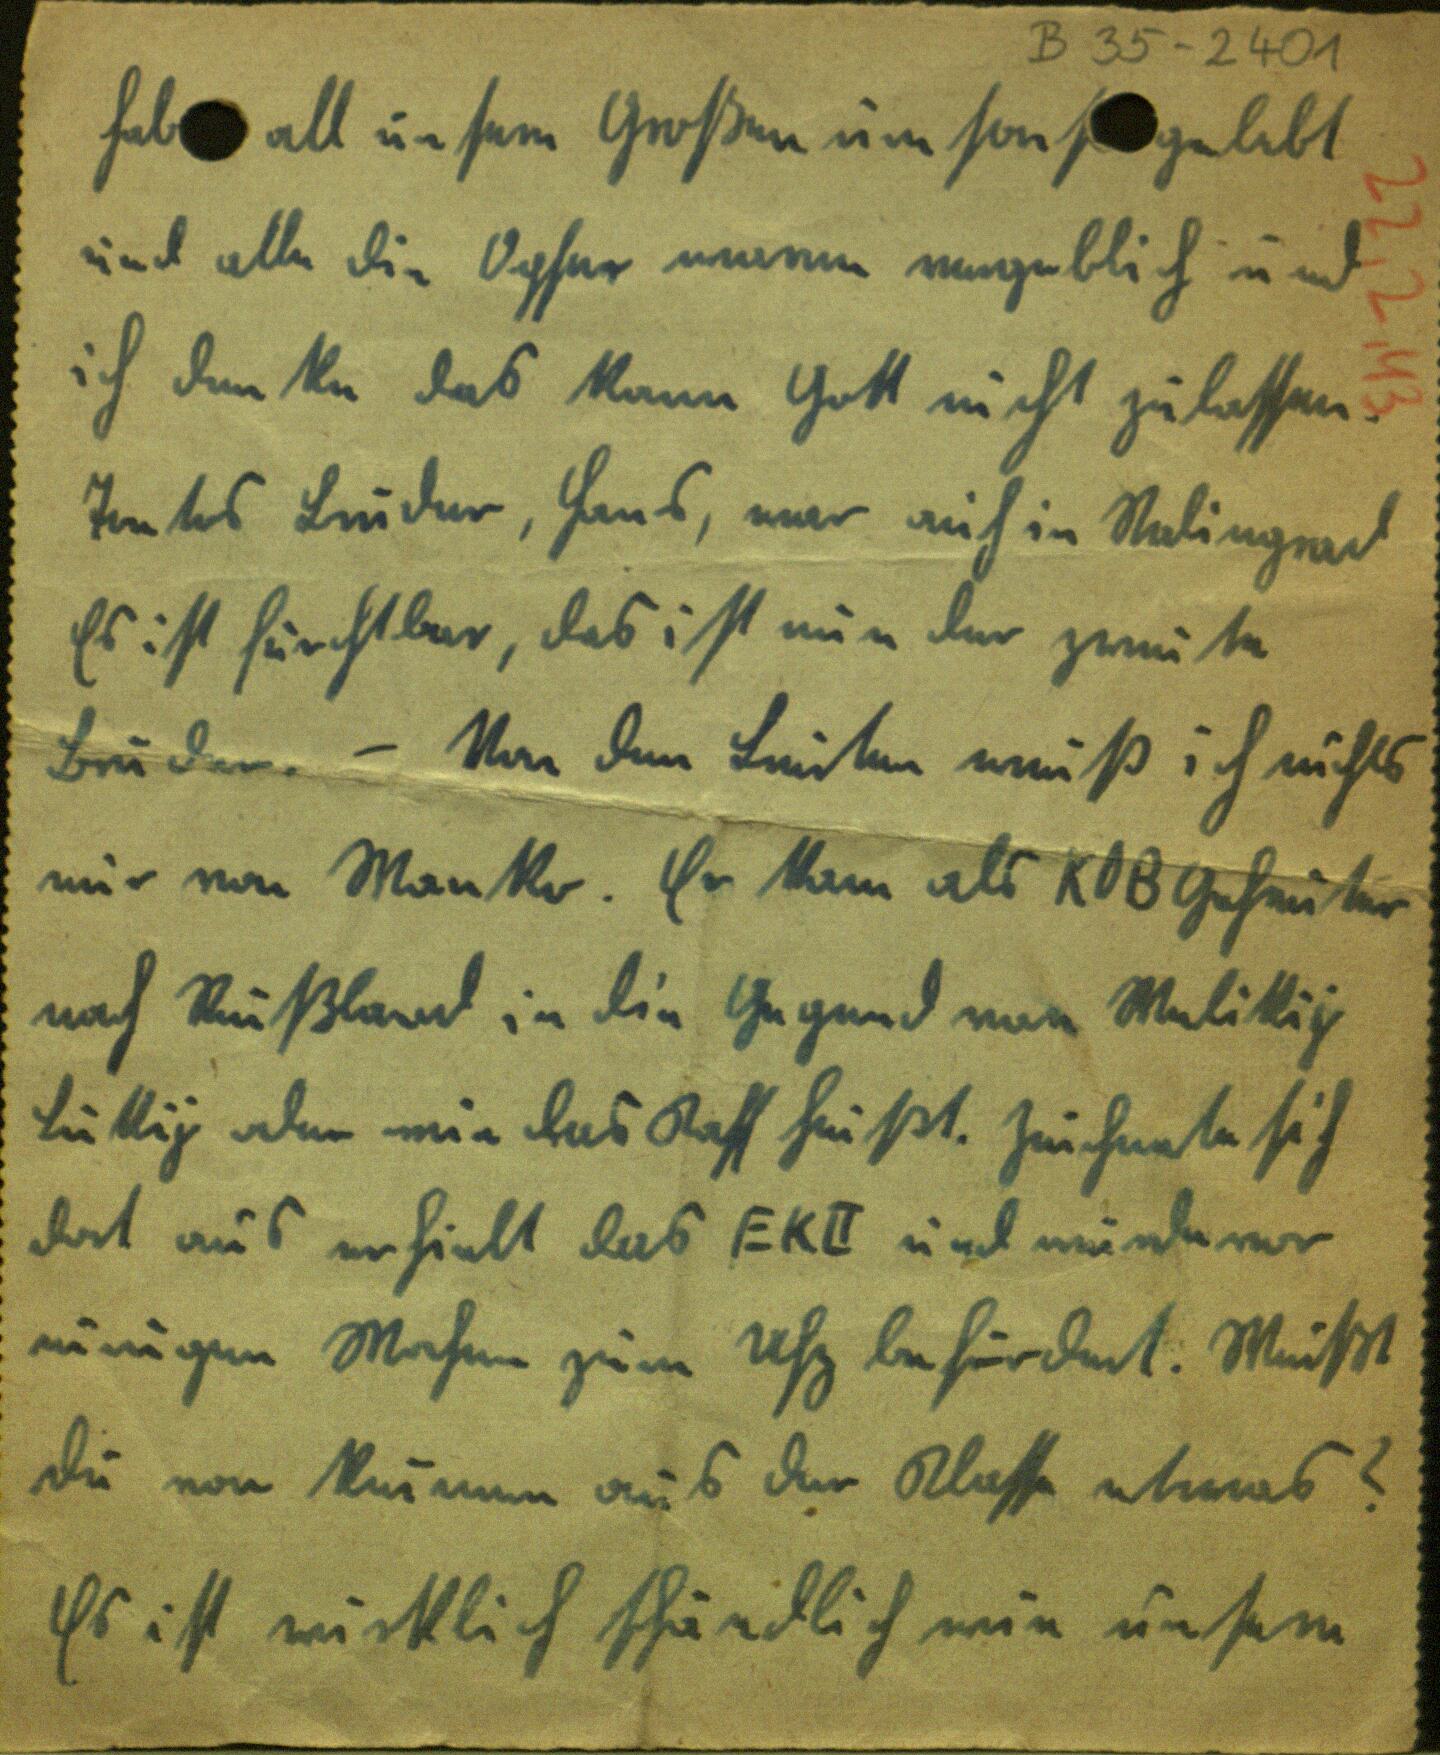 B 35-2401
22.2.43
hab all unsere Großen umsonst gelebt
und alle die Opfer waren vergeblich und
ich denke das kann Gott nicht zulassen.
Bruder, Hans, war auch in Stalingrad
Es ist furchtbar, das ist nun der zweite
Bruder. – Von den Leuten weiß ich nichts
nur von Manko. Er kam als KOB Gefreiter
nach Rußland in die Gegend von Welikije
Lukije oder wie das Kaff heißt. Zeichnete sich
dort aus erhielt das EK II und wurde vor
einigen Wochen zum Uffz befördert. Weißt
du von keinem aus der Klasse etwas?
Es ist wirklich schändlich wie unsere